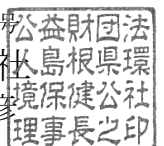 公益財団法
人島根県環
境保健公社
理事長之印
社